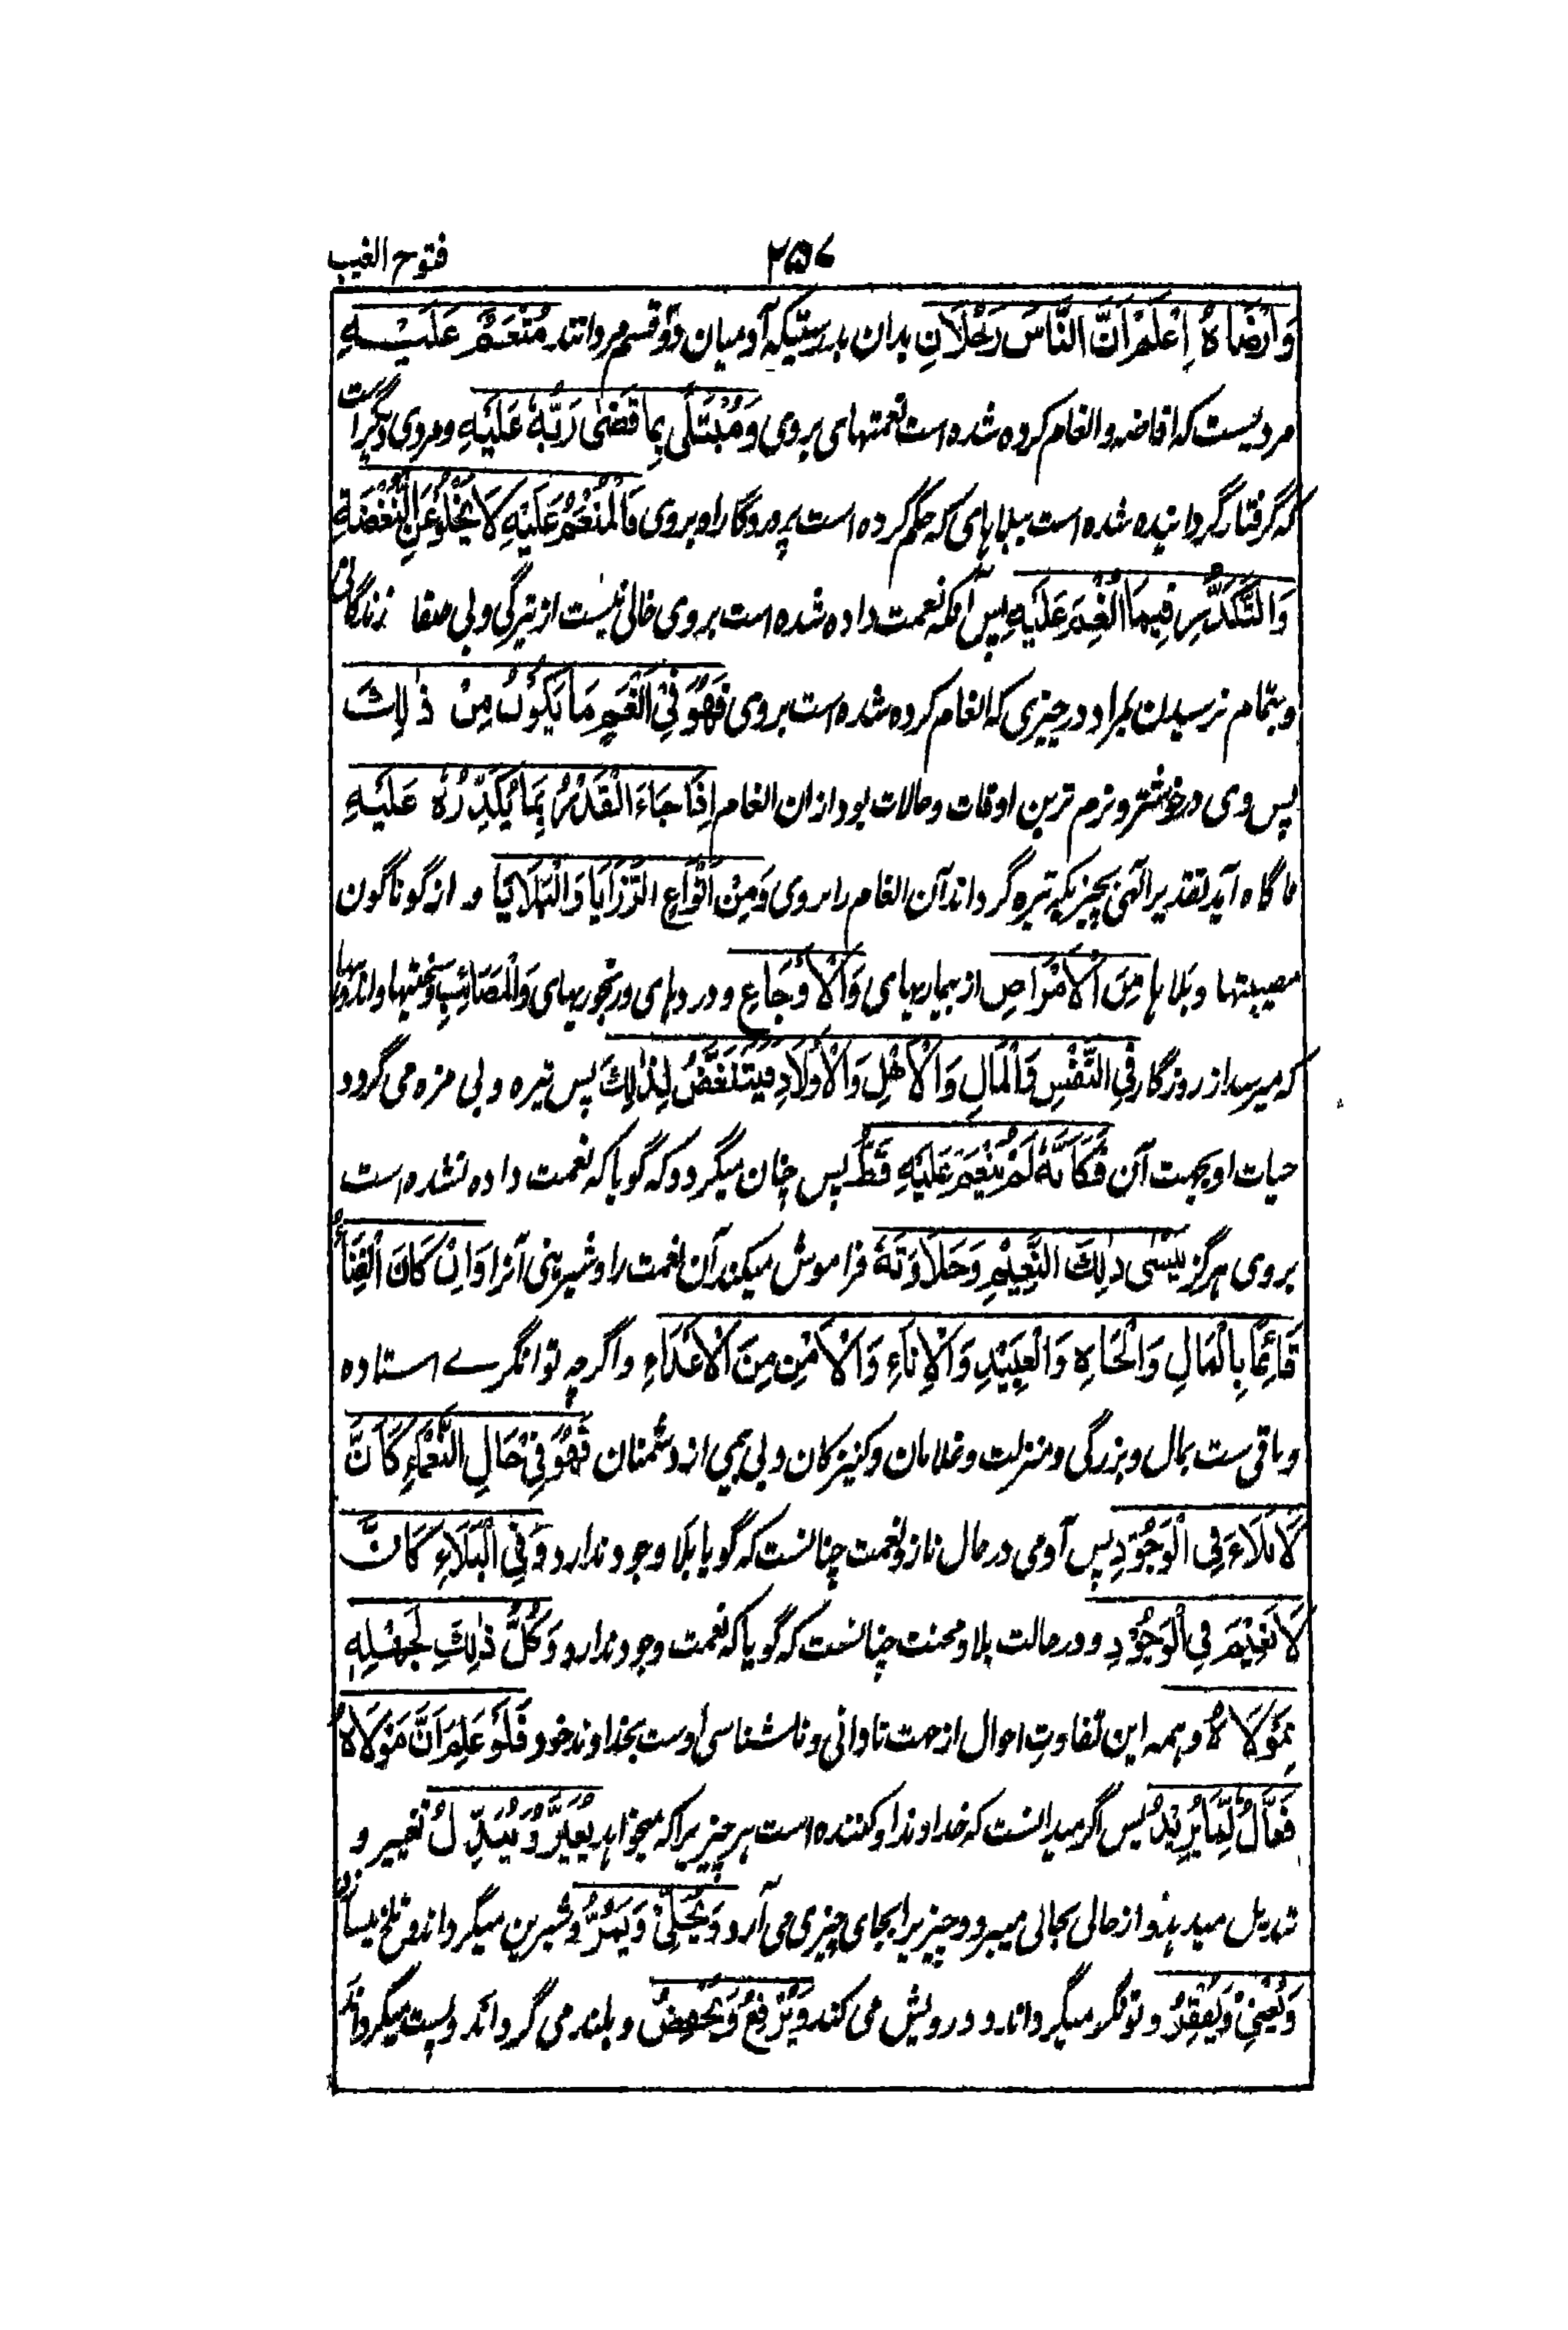 ۲۵۷ فتوح الغیب
وَاَرْضَاهُ اِعْلَمْ اَنَّ النَّاسَ رَجُلَانِ بدان بدرستیکه آدمیان دو قسم مردانند مُنْعَمٌ عَلَيْهِ
مردیست که افاضه و انعام کرده شده است نعمتهای بروی وَمُبْتَلًى بِمَا قَضٰى رَبُّهُ عَلَيْهِ و مردی دیگر است
که گرفتار گردانیده شده است ببلاهای که حکم کرده است پروردگار او بروی فَالْمُنْعَمُ عَلَيْهِ لَا يَخْلُو عَنِ النُّغْصَةِ
وَالتَّكَدُّرِ فِيمَا اُنْعِمَ عَلَيْهِ پس آنکه نعمت داده شده است بروی خالی نیست از تیرگی و بی صفا زندگانی
و بتمام نرسیدن بمراد در چیزی که انعام کرده شده است بروی فَهُوَ فِي اَنْعَمِ مَا يَكُوْنُ مِنْ ذٰلِكَ
پس وی در خوشتر و نرم ترین اوقات و حالات بود ازان انعام اِذَا جَاءَ الْقَدْرُ بِمَا يُكَدِّرُهُ عَلَيْهِ
ناگاه آید تقدیر الٓهی بچیزیکه تیره گرداند آن انعام را بروی وَمِنْ اَنْوَاعِ الرَّزَايَا وَالْبَلَايَا و از گوناگون
مصیبتها و بلاها مِنَ الْاَمْرَاضِ از بیماریهای وَالْاَوْجَاعِ و دردهای و رنجوریهای وَالْمَصَائِبِ و سختیها و اندوهها
که میرسد از روزگار فِي النَّفْسِ وَالْمَالِ وَالْاَهْلِ وَالْاَوْلَادِ فَيَتَنَغَّصُ لِذٰلِكَ پس تیره و بی مزه می گردد
حیات او بجهت آن فَكَاَنَّهُ لَمْ يُنْعَمْ عَلَيْهِ قَطُّ پس چنان میگردد که گویا که نعمت داده نشده است
بروی هرگز يَنْسٰى ذٰلِكَ النَّعِيْمَ وَحَلَاوَتَهُ فراموش میکند آن نعمت را و شیرینی آنرا وَاِنْ كَانَ الْغِنَاءُ
قَائِمًا بِالْمَالِ وَالْجَاهِ وَالْعَبِيْدِ وَالْاِمَاءِ وَالْاَمْنِ مِنَ الْاَعْدَاءِ و اگرچه توانگرے استاده
و باقی ست بمال و بزرگی و منزلت و غلامان و کنیزکان و بی بیمی از دشمنان فَهُوَ فِيْ حَالِ النَّعْمَاءِ كَاَنَّ
لَا بَلَاءَ فِي الْوُجُوْدِ پس آدمی در حال ناز و نعمت چنانست که گویا بلا وجود ندارد وَفِي الْبَلَاءِ كَاَنَّ
لَا نَعِيْمَ فِي الْوُجُوْدِ و در حالت بلا و محنت چنانست که گویا که نعمت وجود ندارد وَكُلُّ ذٰلِكَ لِجَهْلِهٖ
بِمَوْلَاهُ و همه این تفاوتِ احوال از جهت نادانی و ناشناسی اوست بخداوند خود فَلَوْ عَلِمَ اَنَّ مَوْلَاهُ
فَعَّالٌ لِّمَا يُرِيْدُ پس اگر میدانست که خداوند او کننده است هر چیزیرا که میخواهد يُغَيِّرُ وَيُبَدِّلُ تغییر و
تبدیل میدهد و از حالی بحالی میبرد و چیزیرا بجای چیزی می آرد وَيُحْلِيْ وَيُمِرُّ و شیرین میگرداند و تلخ میسازد
وَيُغْنِيْ وَيُفْقِرُ و توانگر میگرداند و درویش می کند وَيَرْفَعُ وَيَخْفِضُ و بلند می گرداند و پست میگرداند